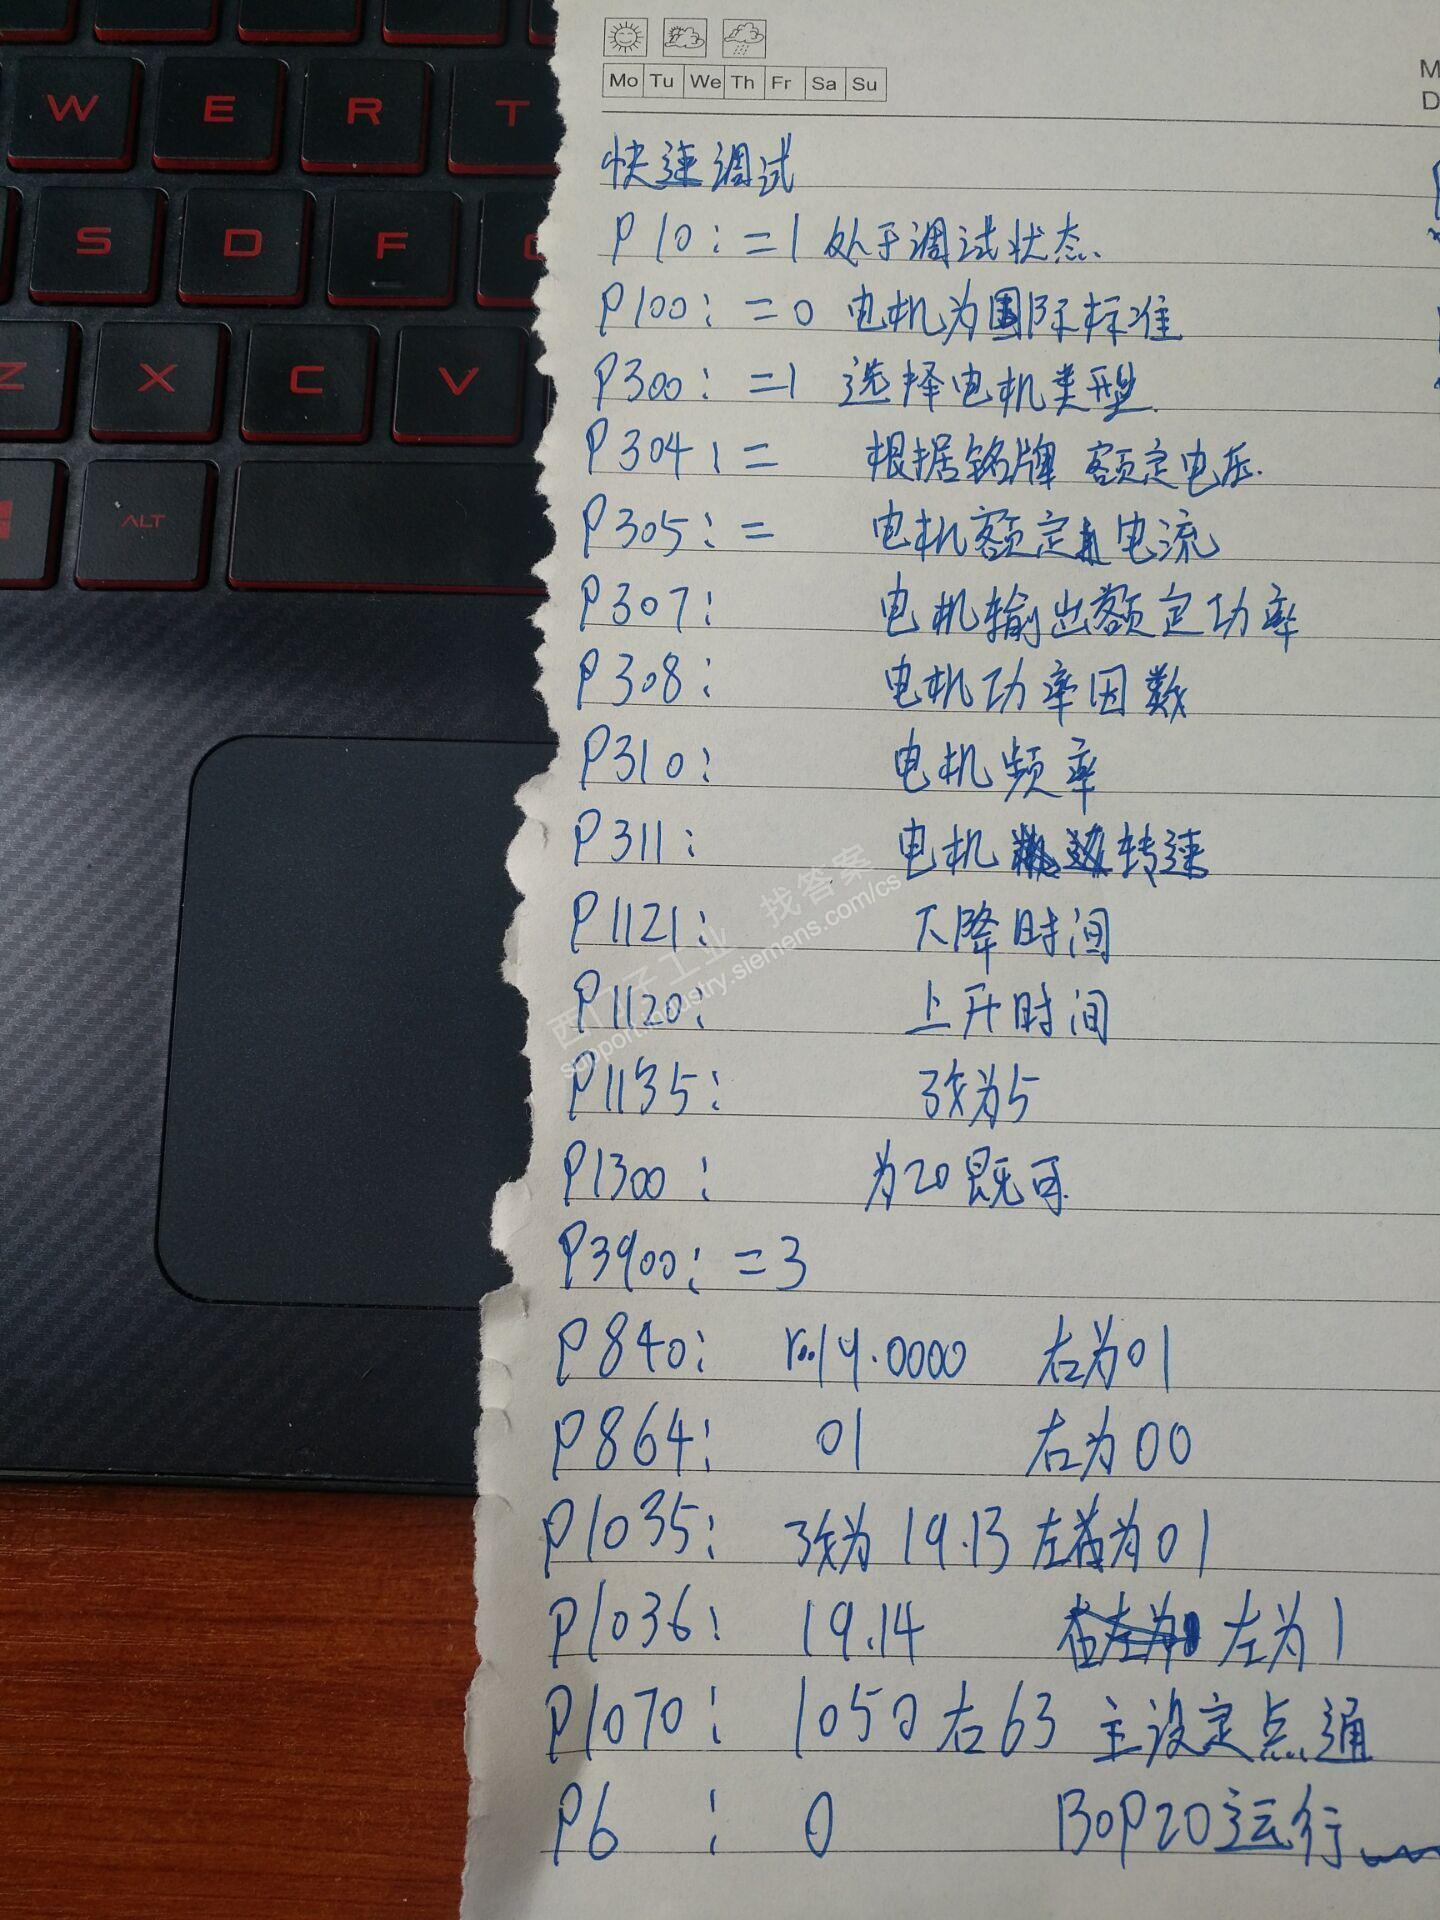 W E R T
S D F
Z X C V
ALT
Mo Tu We Th Fr Sa Su
快速调试
P10:=1 处于调试状态.
P100:=0 电机为国际标准
P300:=1 选择电机类型.
P304:= 根据铭牌 额定电压.
P305:= 电机额定电流
P307: 电机输出额定功率
P308: 电机功率因数
P310: 电机频率
P311: 电机转速
P1121: 下降时间
P1120: 上升时间
P1135: 改为5
P1300: 为20既可
P3900:=3
P840: r..14.0000 右为01
P864: 01 右为00
P1035: 改为19.13 左为01
P1036: 19.14 左为1
P1070: 1050 右63 主设定点通
P6: 0 BOP20运行
西门子工业 找答案
support.industry.siemens.com/cs